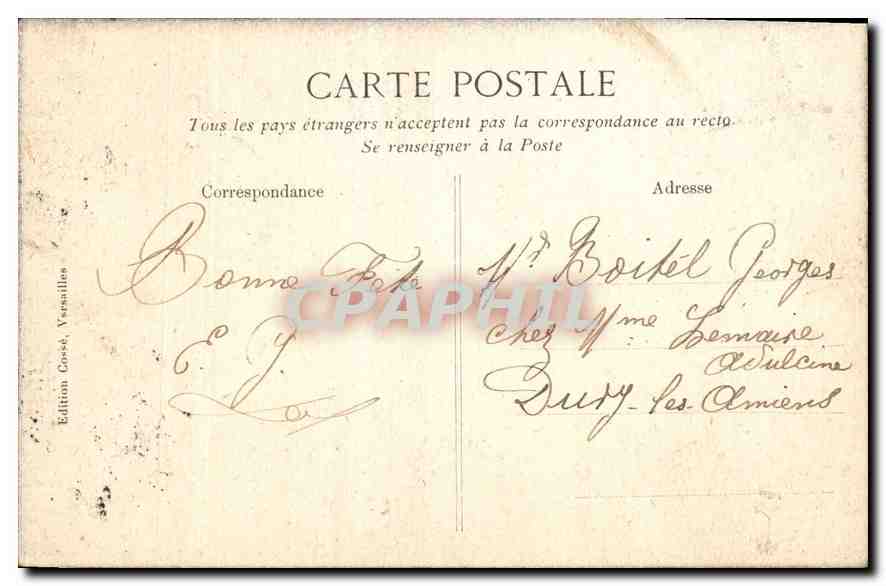 CARTE POSTALE
Tous les pays étrangers n'acceptent pas la correspondance au recto
Se renseigner à la Poste
Correspondance
Bonne Fête
E. J.
Edition Cossé, Versailles
Adresse
Mr Boitel Georges
chez Mme Lemaire
Adulcine
Dury-les-Amiens
CPAPHIL